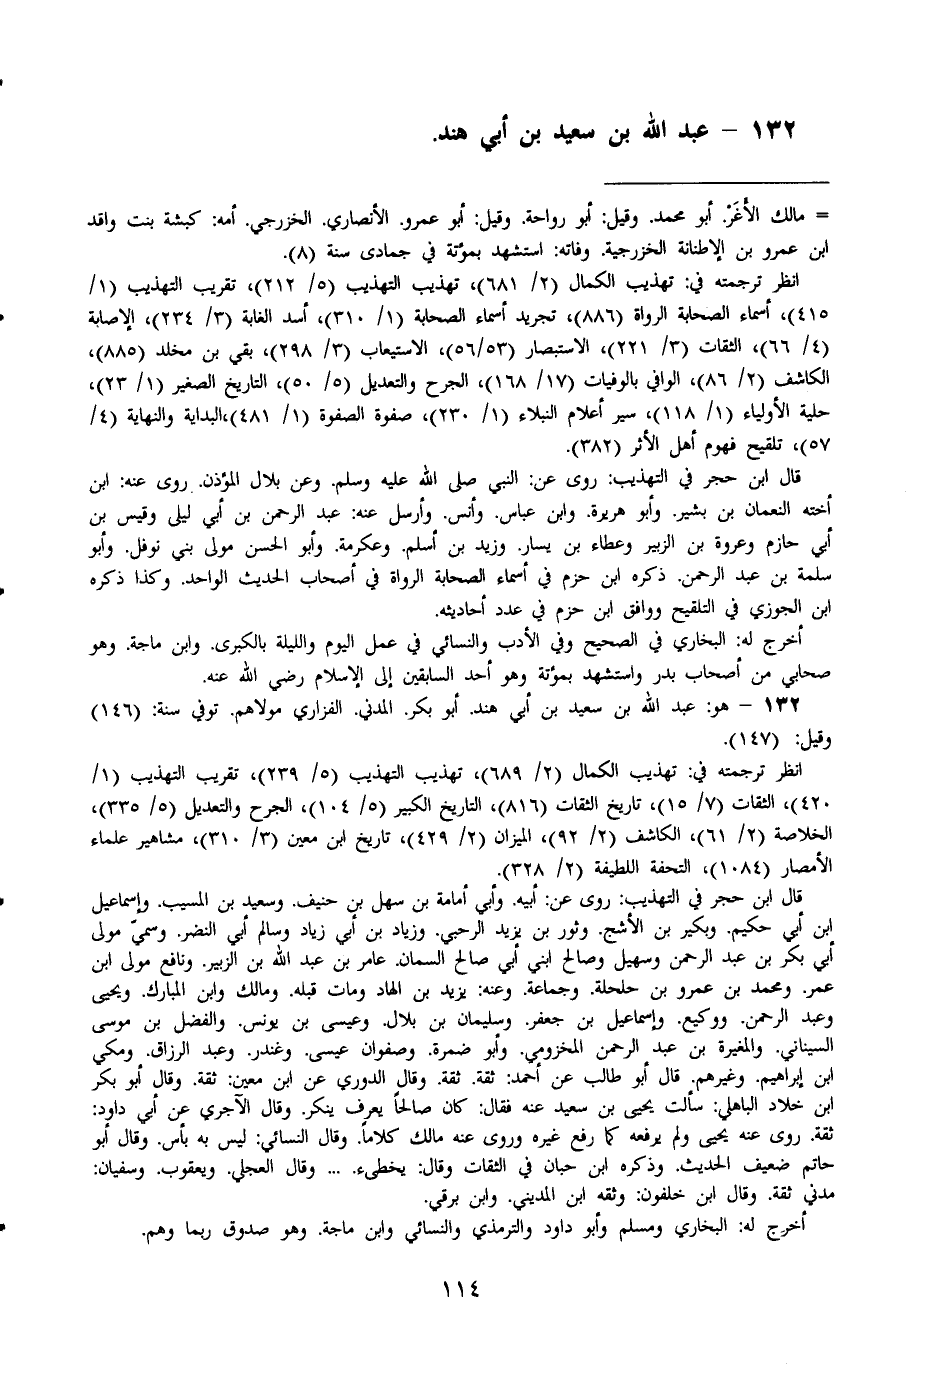 ١٣٢ - عبد الله بن سعيد بن أبي هند.
= مالك الأَغَرْ. أبو محمد. وقيل: أبو رواحة. وقيل: أبو عمرو. الأنصاري. الخزرجي. أمه: كبشة بنت واقد
ابن عمرو بن الإطنانة الخزرجية. وفاته: استشهد بمؤتة في جمادى سنة (٨).
انظر ترجمته في: تهذيب الكمال (٢/ ٦٨١)، تهذيب التهذيب (٥/ ٢١٢)، تقريب التهذيب (١/
٤١٥)، أسماء الصحابة الرواة (٨٨٦)، تجريد أسماء الصحابة (١/ ٣١٠)، أسد الغابة (٣/ ٢٣٤)، الإصابة
(٤/ ٦٦)، الثقات (٣/ ٢٢١)، الاستبصار (٥٦/٥٣)، الاستيعاب (٣/ ٢٩٨)، بقي بن مخلد (٨٨٥)،
الكاشف (٢/ ٨٦)، الوافي بالوفيات (١٧/ ١٦٨)، الجرح والتعديل (٥/ ٥٠)، التاريخ الصغير (١/ ٢٣)،
حلية الأولياء (١/ ١١٨)، سير أعلام النبلاء (١/ ٢٣٠)، صفوة الصفوة (١/ ٤٨١)،البداية والنهاية (٤/
٥٧)، تلقيح فهوم أهل الأثر (٣٨٢).
قال ابن حجر في التهذيب: روى عن: النبي صلى الله عليه وسلم. وعن بلال المؤذن. روى عنه: ابن
أخته النعمان بن بشير. وأبو هريرة. وابن عباس. وأنس. وأرسل عنه: عبد الرحمن بن أبي ليلى وقيس بن
أبي حازم وعروة بن الزبير وعطاء بن يسار. وزيد بن أسلم. وعكرمة. وأبو الحسن مولى بني نوفل. وأبو
سلمة بن عبد الرحمن. ذكره ابن حزم في أسماء الصحابة الرواة في أصحاب الحديث الواحد. وكذا ذكره
ابن الجوزي في التلقيح ووافق ابن حزم في عدد أحاديثه.
أخرج له: البخاري في الصحيح وفي الأدب والنسائي في عمل اليوم والليلة بالكبرى. وابن ماجة. وهو
صحابي من أصحاب بدر واستشهد بمؤتة وهو أحد السابقين إلى الإسلام رضي الله عنه.
١٣٢ - هو: عبد الله بن سعيد بن أبي هند. أبو بكر. المدني. الفزاري مولاهم. توفي سنة: (١٤٦)
وقيل: (١٤٧).
انظر ترجمته في: تهذيب الكمال (٢/ ٦٨٩)، تهذيب التهذيب (٥/ ٢٣٩)، تقريب التهذيب (١/
٤٢٠)، الثقات (٧/ ١٥)، تاريخ الثقات (٨١٦)، التاريخ الكبير (٥/ ١٠٤)، الجرح والتعديل (٥/ ٣٣٥)،
الخلاصة (٢/ ٦١)، الكاشف (٢/ ٩٢)، الميزان (٢/ ٤٢٩)، تاريخ ابن معين (٣/ ٣١٠)، مشاهير علماء
الأمصار (١٠٨٤)، التحفة اللطيفة (٢/ ٣٢٨).
قال ابن حجر في التهذيب: روى عن: أبيه. وأبي أمامة بن سهل بن حنيف. وسعيد بن المسيب. وإسماعيل
ابن أبي حكيم. وبكير بن الأشج. وثور بن يزيد الرحبي. وزياد بن أبي زياد وسالم أبي النضر. وسميّ مولى
أبي بكر بن عبد الرحمن وسهيل وصالح ابني أبي صالح السمان. عامر بن عبد الله بن الزبير. ونافع مولى ابن
عمر. ومحمد بن عمرو بن حلحلة. وجماعة. وعنه: يزيد بن الهاد ومات قبله. ومالك وابن المبارك. ويحيى
وعبد الرحمن. ووكيع. وإسماعيل بن جعفر. وسليمان بن بلال. وعيسى بن يونس. والفضل بن موسى
السيناني. والمغيرة بن عبد الرحمن المخزومي. وأبو ضمرة. وصفوان عيسى. وغندر. وعبد الرزاق. ومكي
ابن إبراهيم. وغيرهم. قال أبو طالب عن أحمد: ثقة. ثقة. وقال الدوري عن ابن معين: ثقة. وقال أبو بكر
ابن خلاد الباهلي: سألت يحيى بن سعيد عنه فقال: كان صالحاً يعرف ينكر. وقال الآجري عن أبي داود:
ثقة. روى عنه يحيى ولم يرفعه كما رفع غيره وروى عنه مالك كلاماً. وقال النسائي: ليس به بأس. وقال أبو
حاتم ضعيف الحديث. وذكره ابن حبان في الثقات وقال: يخطىء. ... وقال العجلي. ويعقوب. وسفيان:
مدني ثقة. وقال ابن خلفون: وثقه ابن المديني. وابن برقي.
أخرج له: البخاري ومسلم وأبو داود والترمذي والنسائي وابن ماجة. وهو صدوق ربما وهم.
١١٤